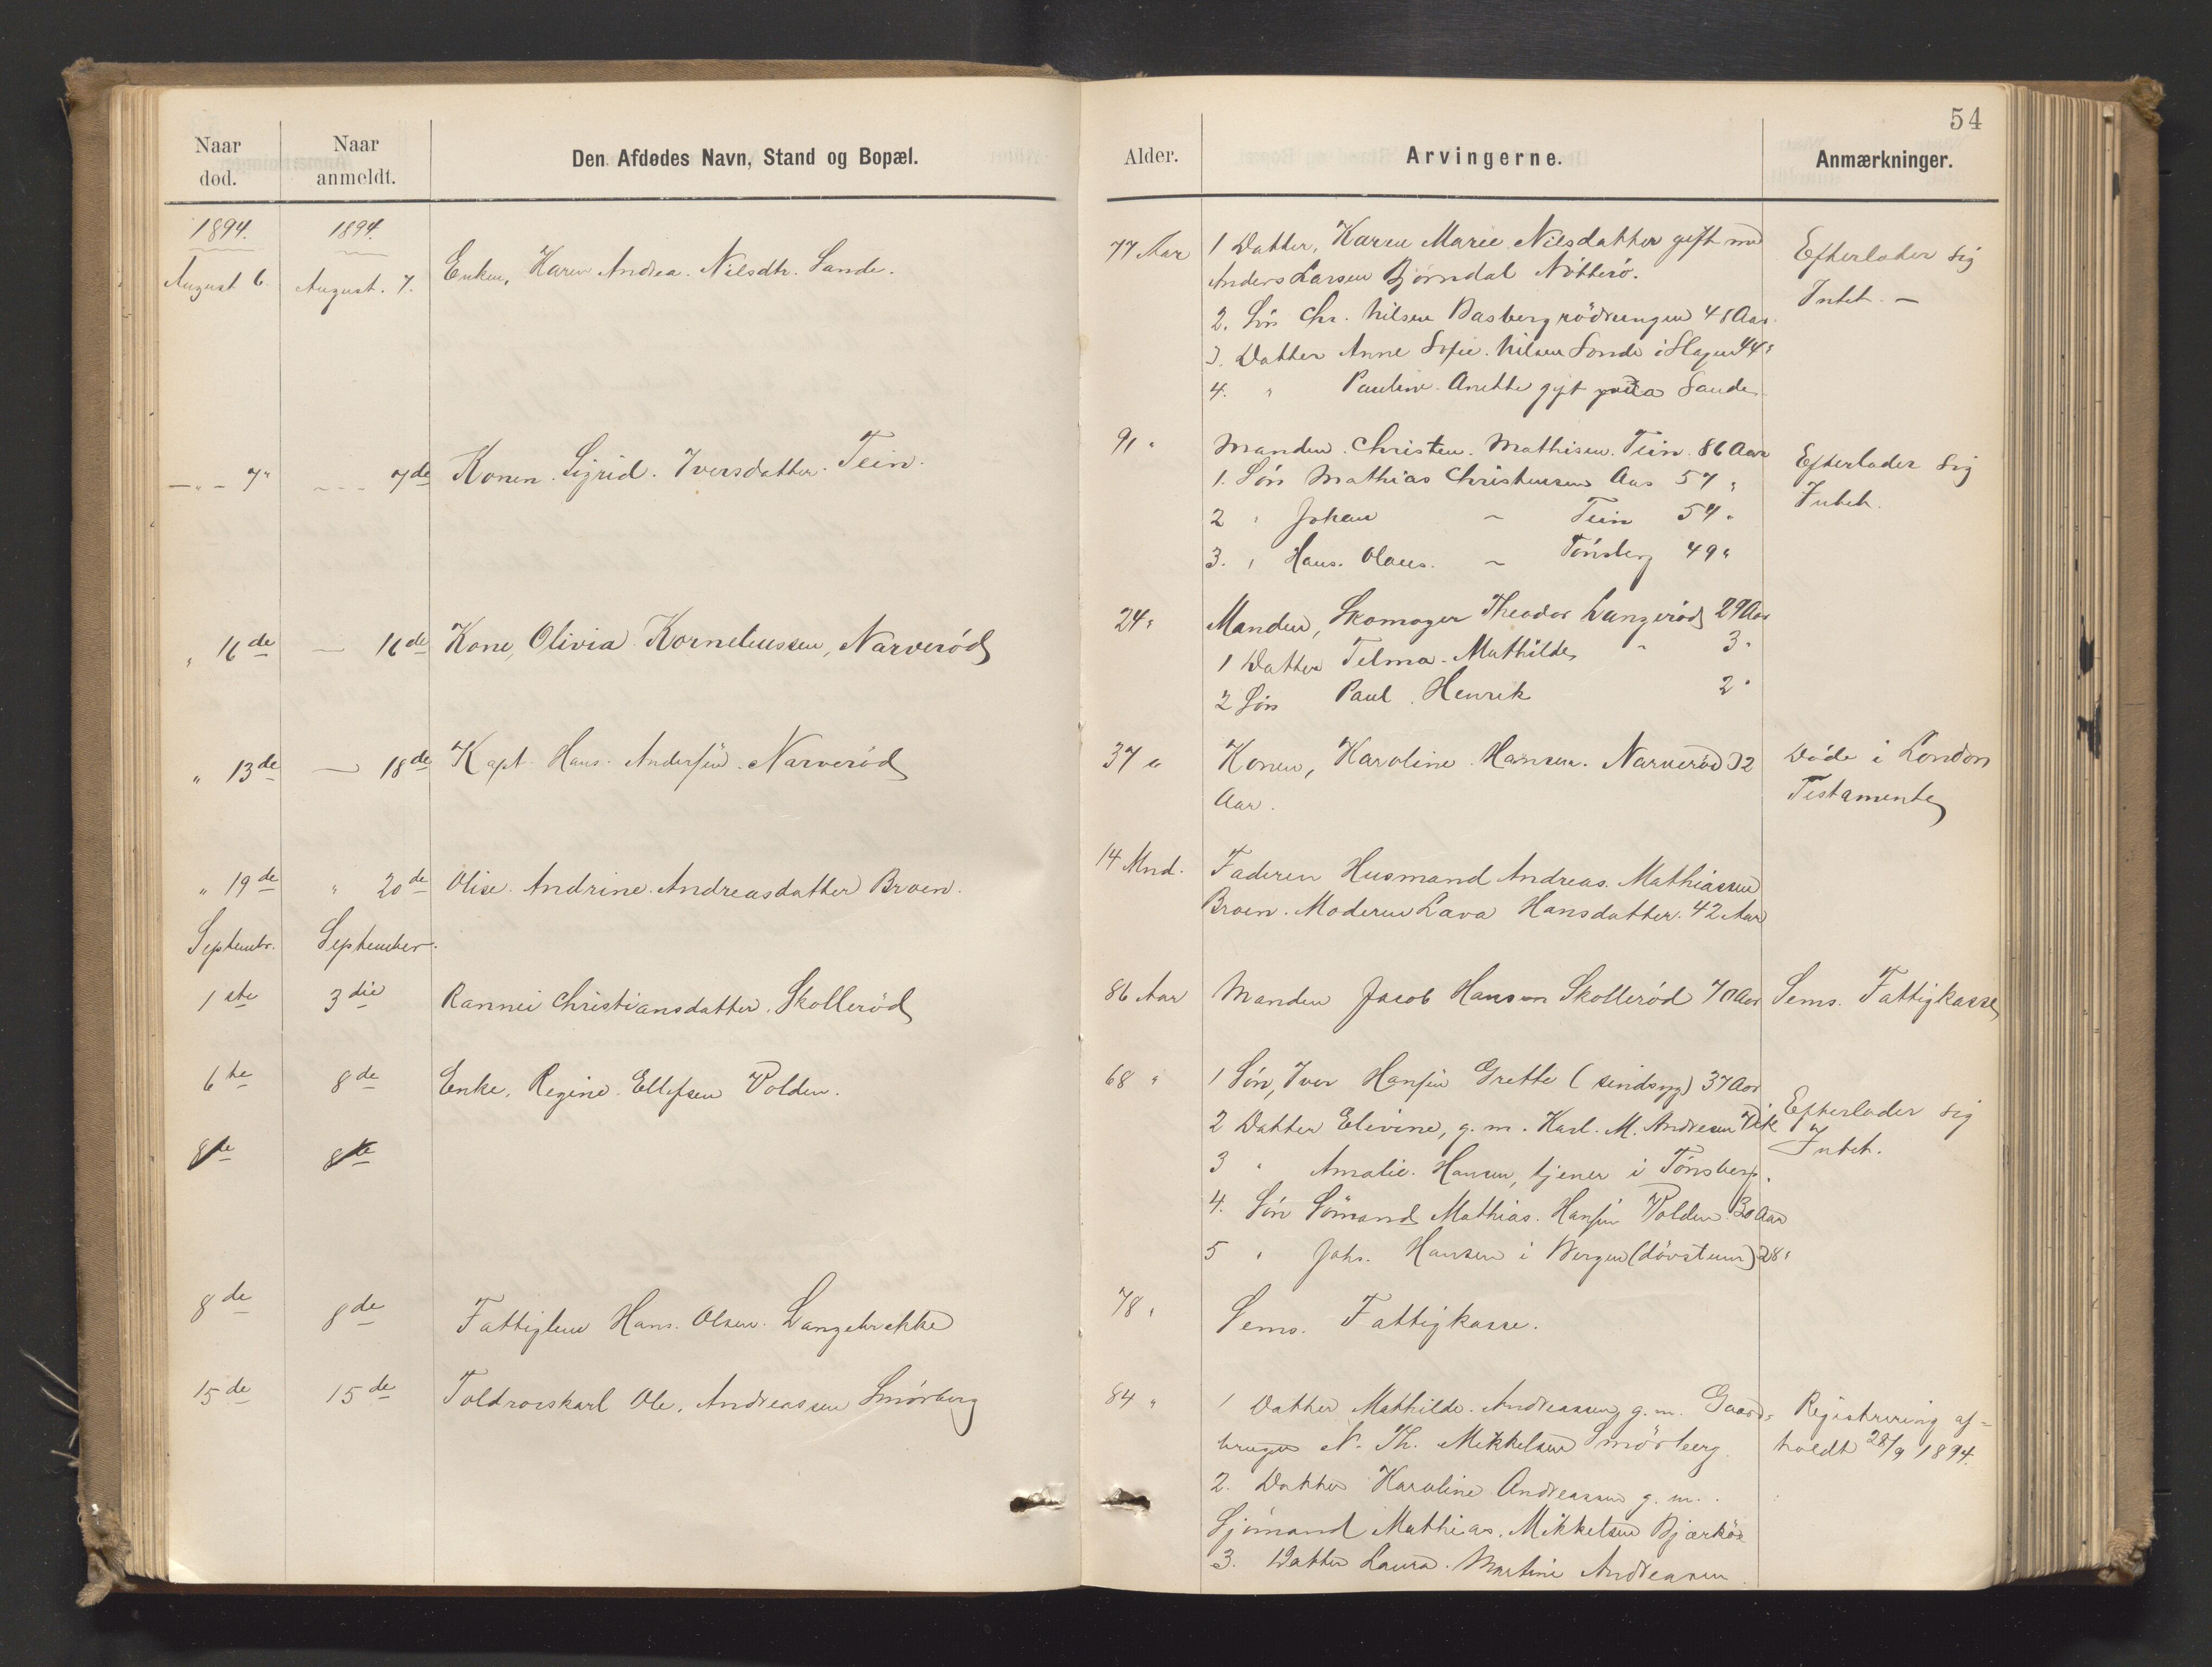 54
Naar død.
Naar anmeldt.
Den Afdødes Navn, Stand og Bopæl.
Alder.
Arvingerne.
Anmærkninger.
1894. 1894.
August 6. August. 7. Enken, Karen Andrea. Nilsdtr. Sande.
77 Aar 1 Datter, Karen Marie Nilsdatter gift med
Anders Larsen Bjørndal Nötterö.
2. Sön Chr. Nilsen Basberg rödningen 48 Aar.
3. Datter Anne Sofie. Nilsen Sande i Slagen 44 "
4. " Pauline Anette gift Sande.
Efterlader sig
Intet. —
— " — 7" — — — 7de Konen. Sigrid. Iversdatter. Tein.
91 " Manden. Christen. Mathisen. Tein. 86 Aar
1. Sön Mathias Christensen Aas 57 "
2 " Johan — Tein 54 "
3. " Hans. Olaus. — Tönsberg 49 "
Efterlader Sig
Intet.
" 16de — 16de Kone, Olivia Korneliussen, Narveröd
24 " Manden, Skomager Theodor Langeröd 29 Aar
1 Datter Telma. Mathilde " 3 "
2 Sön Paul. Henrik 2 "
" 13de — 18de Kapt. Hans. Andersen. Narveröd
37 " Konen, Karoline Hansen. Narveröd 32
Aar.
Döde i London
Testamente
" 19de " 20de Olise. Andrine. Andreasdatter Broen.
14 Mnd. Faderen Husmand Andreas. Mathiassen
Broen. Moderen Lava Hansdatter. 42 Aar
Septembr. September.
1ste 3die Rannei Christiansdatter. Skolleröd
86 Aar Manden Jacob Hansen Skolleröd 70 Aar Sems. Fattigkasse
6te 8de Enke, Regine. Ellefsen Volden.
68 " 1 Sön, Iver Hansen Grette (sindsyg) 37 Aar
2 Datter Elivine, g. m. Karl. M. Andresen Vik
3 " Amalie. Hansen, tjener i Tönsberg.
4. Sön Sömand Mathias. Hansen Volden 30 Aar
5 " Johs. Hansen i Bergen (dövstum) 28 "
Efterlader sig
Intet.
8de 8de
8de 8de Fattiglem Hans. Olsen. Langebrekke
78 " Sems. Fattigkasse.
15de 15de Toldroerskarl Ole. Andreassen Smörberg
84 " 1 Datter Mathilde. Andreassen g. m. Gaard-
bruger N. Th. Mikkelsen Smörberg.
2. Datter Karoline Andreassen g. m.
Sjömand Mathias. Mikkelsen Bjerkö
3. Datter Laura. Martine Andreasen
Registrering af-
holdt 28/9 1894.